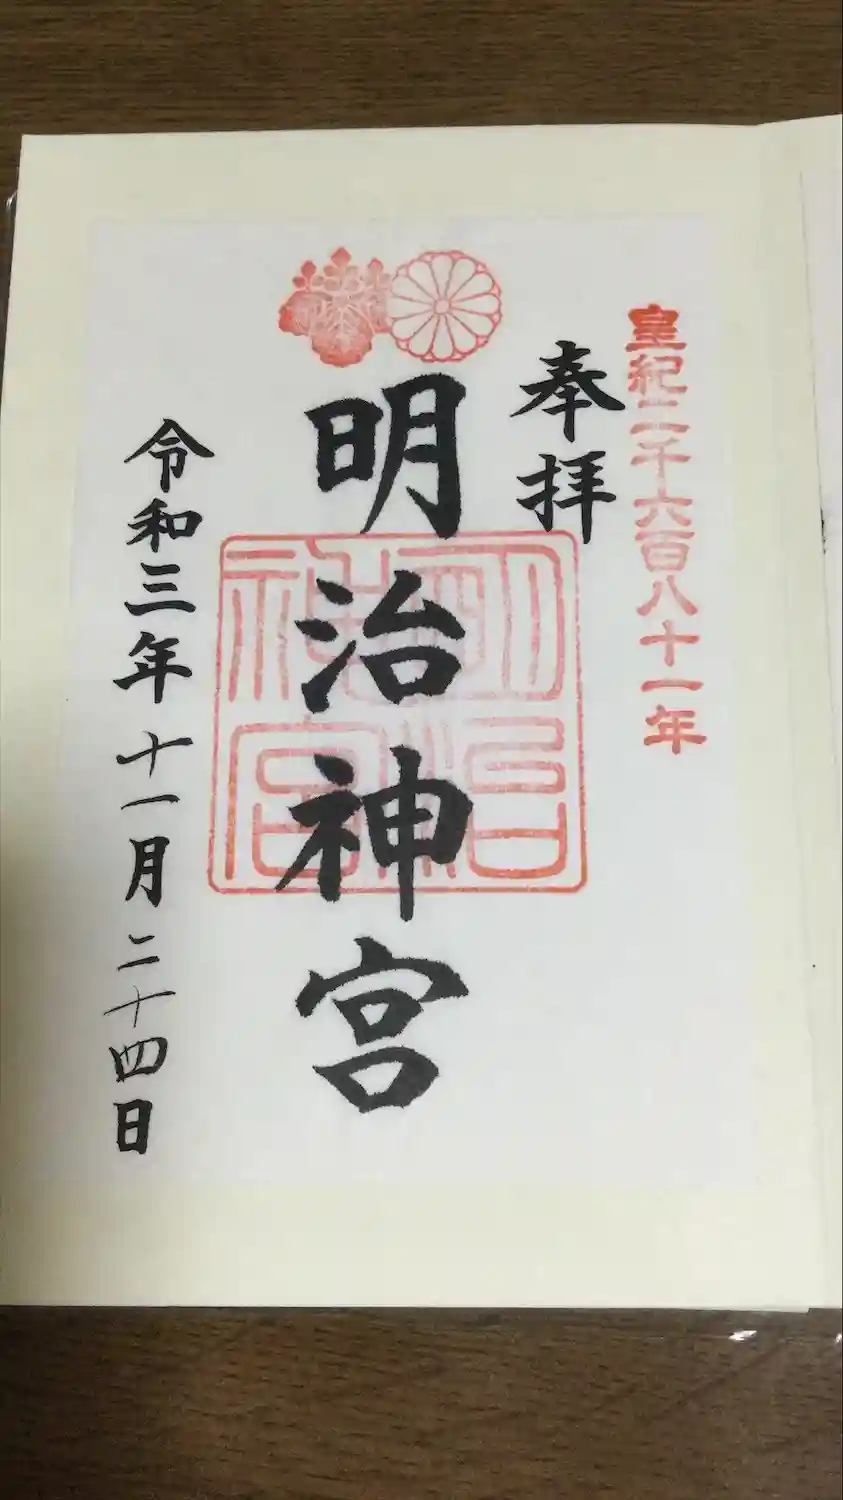 皇紀二千六百八十一年
奉拝
明治神宮
明治神宮
令和三年十一月二十四日